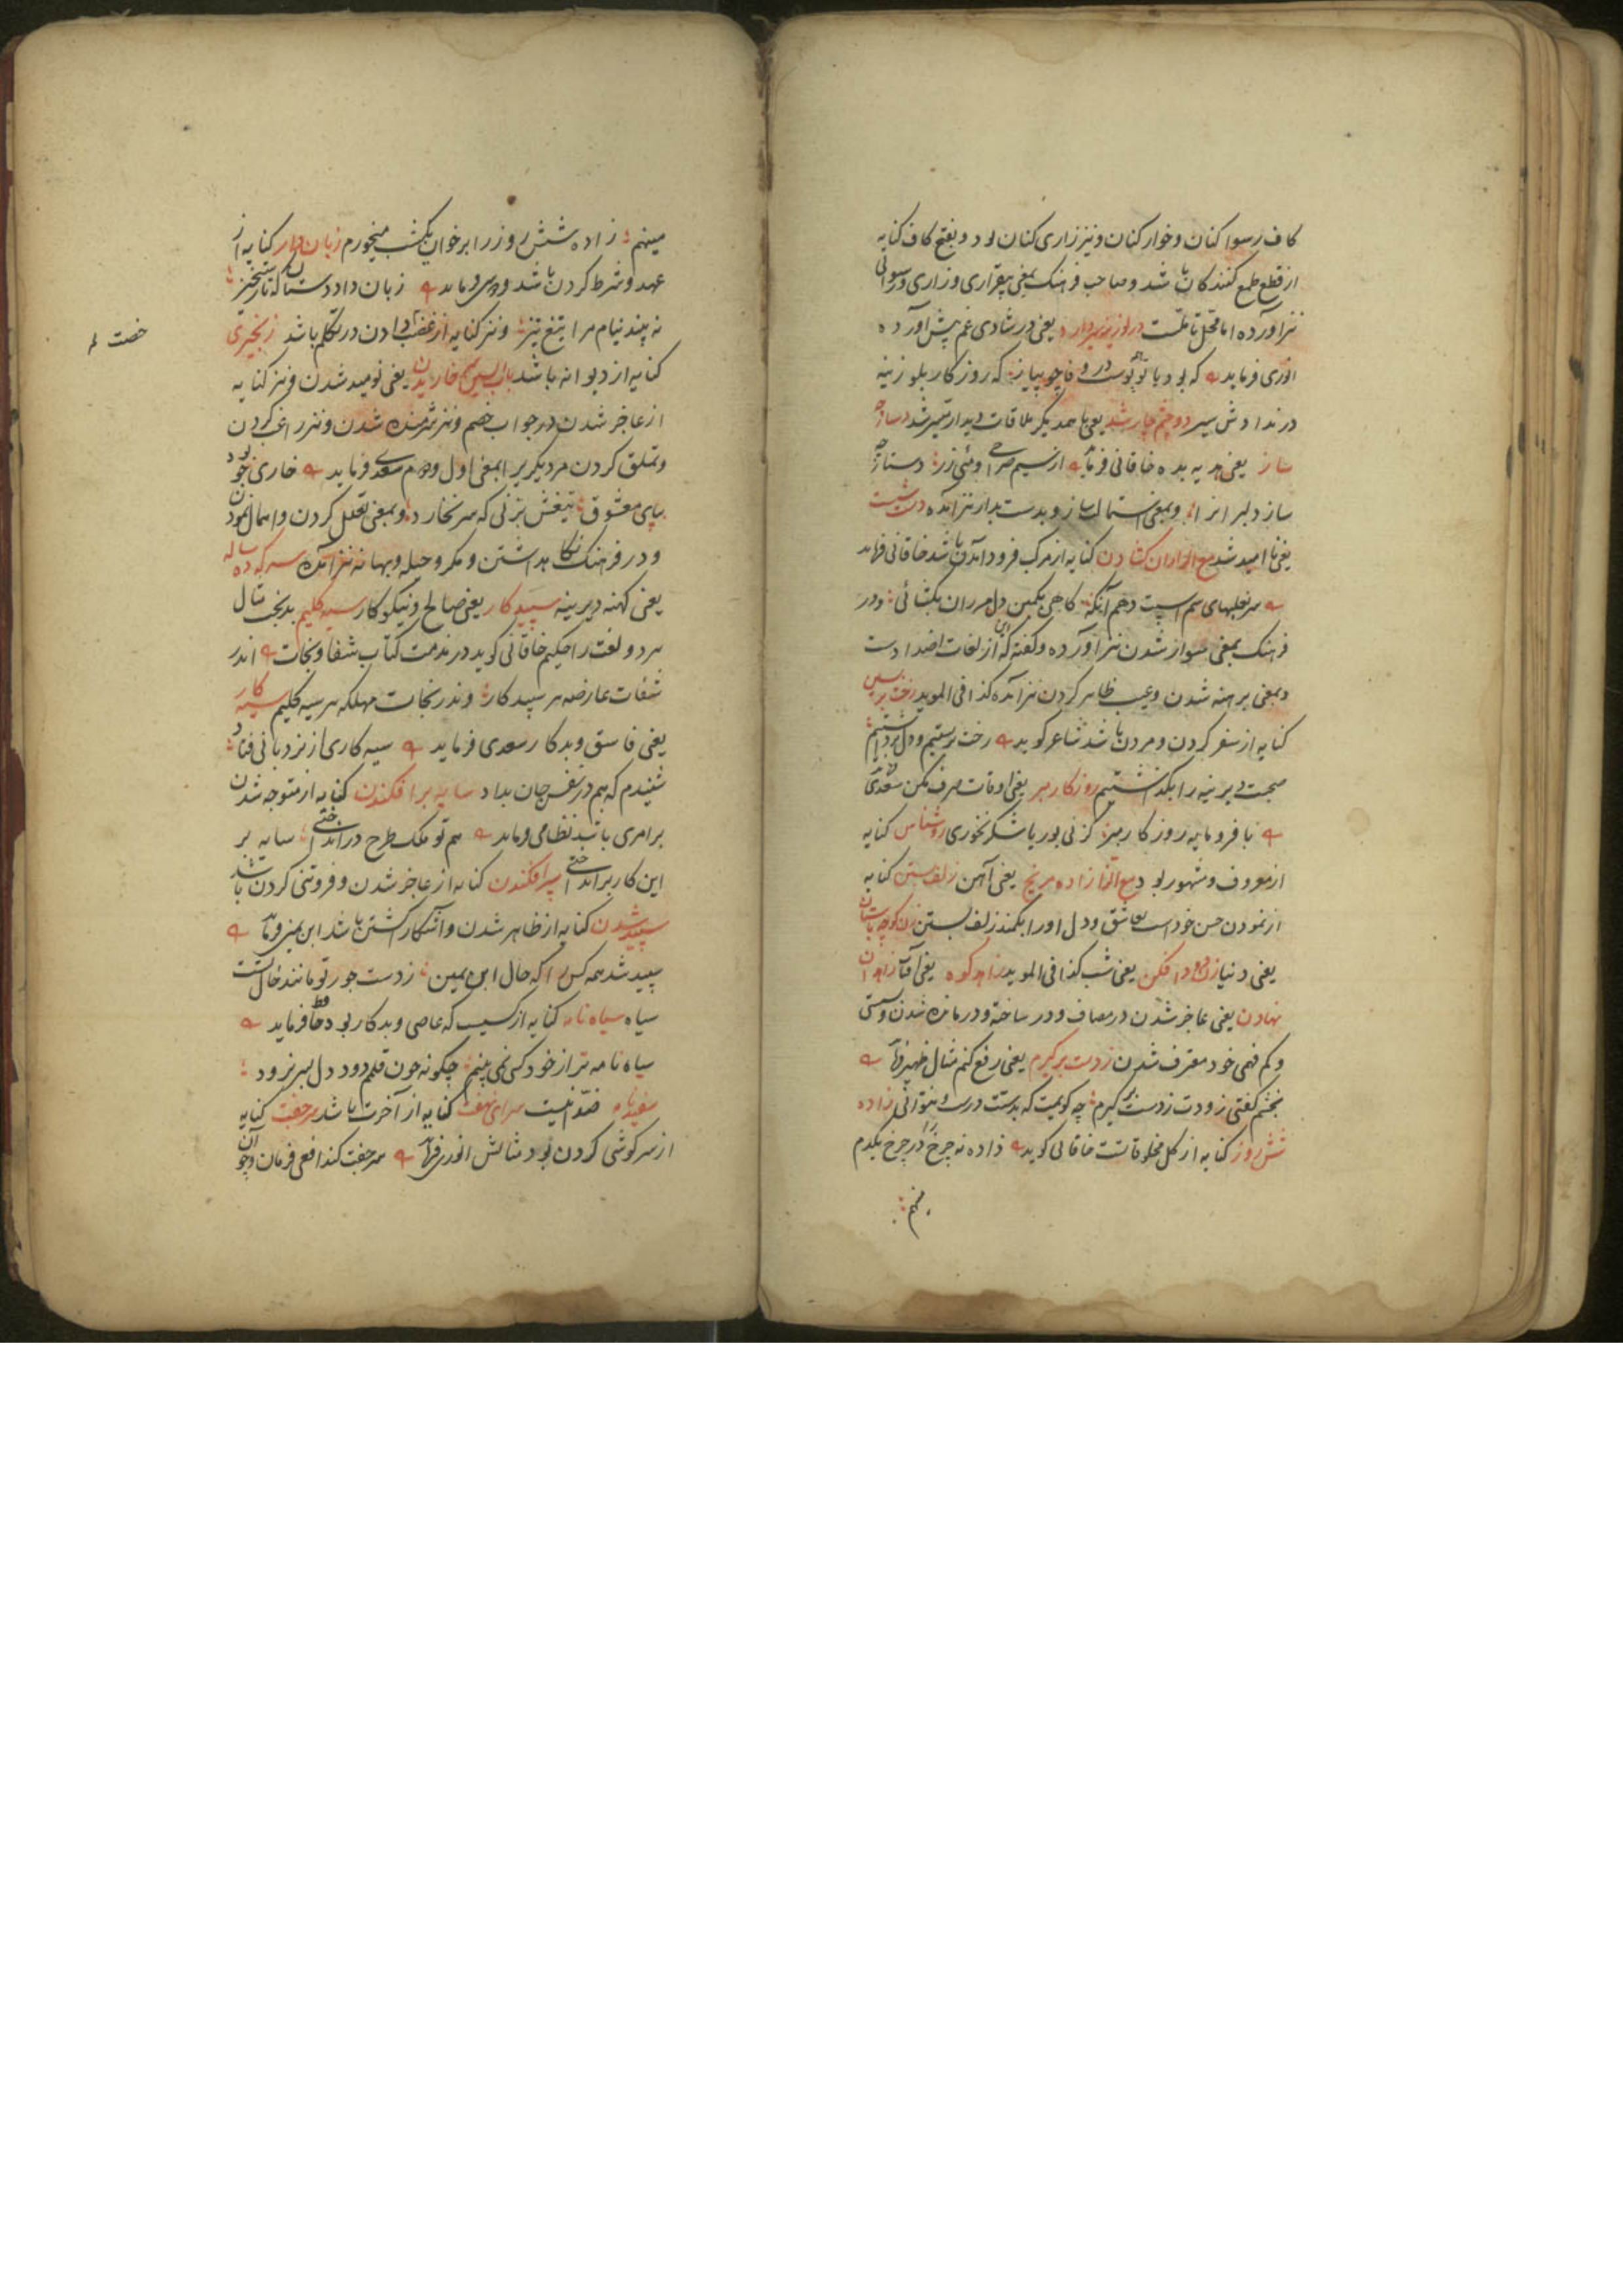 کاف رسوا کنان و خوار کنان و نیز زاری کنان بود و بفتح کاف کنایه
از قطع طمع کنندکان باشد و صاحب فرهنک بمعنی بیقراری و زاری و رسوائی
نیز آورده اما محل تاملست در لوزینه سیر دارد یعنی در شادی غم پیش آورده
انوری فرماید که بود با تو پوست در و فا چو پیاز که روز کار بلوزینه
در نداوش سیر دو چشم چار شد یعنی با همدیکر ملاقات دیدار میسر شد دستارچه
ساز یعنی هدیه بده خاقانی فرماید از نسیم می زر دستارچه
ساز دلبرانرا و بمعنی استمال ساز و بدست بدار نیز آمده دست شست
یعنی نا امید شد مع الراء ران کشادن کنایه از مرکب فرود آمدن باشد خاقانی فرماید
سر نعلبهای سم اسپت دهم آنکه کاهی بکمین دل مر ران بکشائی و در
فرهنک بمعنی سوار شدن نیز آورده و کفته که این از لغات اضدادست
و بمعنی برهنه شدن و عیب ظاهر کردن نیز آمده کذا فی الموید رخت بربستن
کنایه از سفر کردن و مردن باشد شاعر کوید رخت بربستیم و دل برداشتیم
صحبت دیرینه را بکذاشتیم روزکار مبر یعنی اوقات صرف مکن سعدی
با فرومایه روزکار مبر کز نی بوریا شکر نخوری روشناس کنایه
از معروف و مشهور بود مع الزا زاده مریخ یعنی آهن زلف بستن کنایه
از نمودن حسن خود است بعاشق و دل او را بکمند زلف بستن زن کوچه باستان
یعنی دنیا زن دود افکن یعنی شب کذا فی الموید زاهد کوه یعنی آفتاب زاهدان
نهادن یعنی عاجز شدن در مصاف و در ساخته و درمانده شدن و سستی
و کم فهمی خود معترف شدن زدست برکیرم یعنی رفع کنم مثال ظهیر فرماید
بخشم کفتی زودت زدست برکیرم چه کویمت که بدستت درست و بتوانی زاده
شش روز کنایه از کل مخلوقاتست خاقانی کوید زاده نه چرخ را در چرخ یکدم
نهم
مینهم زاده شش روز را بر خوان یکشب میخورم زبان دادن کنایه از
عهد و شرط کردن باشد فردوسی فرماید زبان داد دستان که تا رستخیز
نه بیند نیام مرا تیغ تیز و نیز کنایه از رخصت دادن در تکلم باشد زنجیری
کنایه از دیوانه باشد باب السین سر خاریدن یعنی نومید شدن و نیز کنایه
از عاجز شدن در جواب خصم و نیز شرمنده شدن و نیز راغب کردن
و تملق کردن مر دیکریرا بمعنی اول و دوم سعدی فرماید خاری چو بود
بپای معشوق تیغش بزنی که سر نخارد و بمعنی تعلل کردن و اهمال نمودن
و در فرهنک نکاهداشتن و مکر و حیله و بهانه نیز آمده سرکه ده ساله
یعنی کهنه و دیرینه سپید کار یعنی صالح و نیکوکار سیه کلیم بدبخت مثال
هر دو لغت را حکیم خاقانی کوید در مذمت کتاب شفا و نجات اندر
شفات عارضه هر سپید کار وندر نجات مهلکه هر سیه کلیم سیه کار
یعنی فاسق و بدکار سعدی فرماید سیه کاری از نردبانی فتاد
شنیدم که هم در نفس جان بداد سایه برافکندن کنایه از متوجه شدن
بر امری باشد نظامی فرماید هم تو فلک طرح در انداختی سایه بر
این کار بر انداختی سپر افکندن کنایه از عاجز شدن و فروتنی کردن باشد
سپید شدن کنایه از ظاهر شدن و آشکار کشتن باشد ابن یمین فرماید
سپید شد همه کس را که حال ابن یمین زدست جور تو مانند خال تست
سیاه سیاه نامه کنایه از کسیست که عاصی و بدکار بود حافظ فرماید
سیاه نامه تر از خود کسی نمی بینم چکونه چون قلمم دود دل بسر نرود
سفید نامه ضد آنیست سرای نهفت کنایه از آخرت باشد سر جفت کنایه
از سرکوشی کردن بود مثالش انوری فرماید سر جفت کند افعی فرمان و چو آن